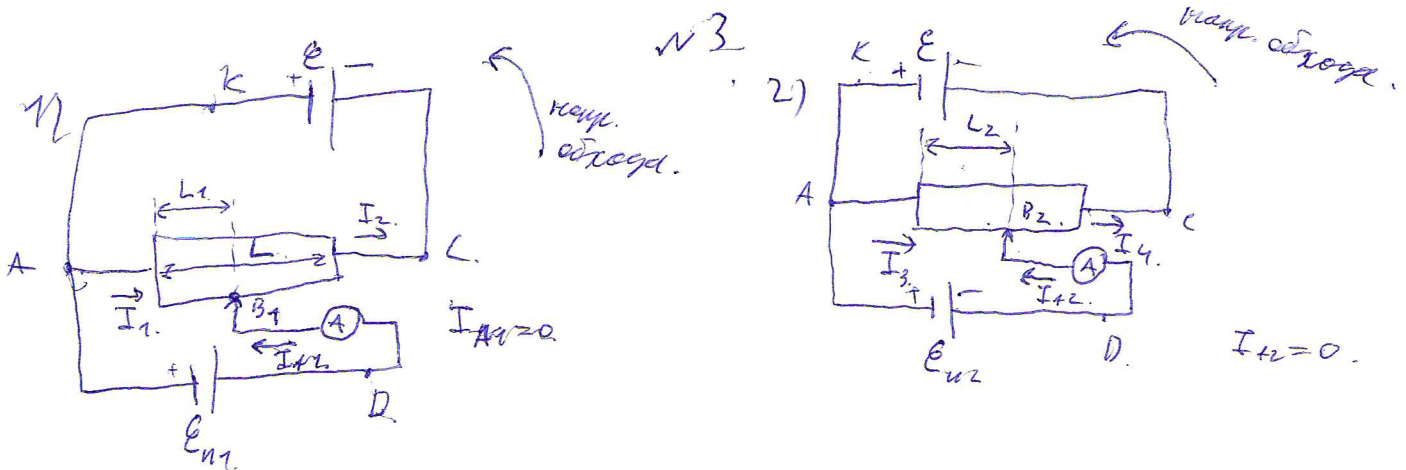 №3
1)
K
+
ℰ
−
напр.
обхода.
L1.
L
I2.
A
C.
I1.
B1
A
IA1=0.
IA1.
+
ℰп1.
D
2)
K
+
ℰ
−
напр. обхода.
L2
A
B2.
C
I3.
I4.
A
IA2.
+
−
ℰп2
D.
IA2=0.